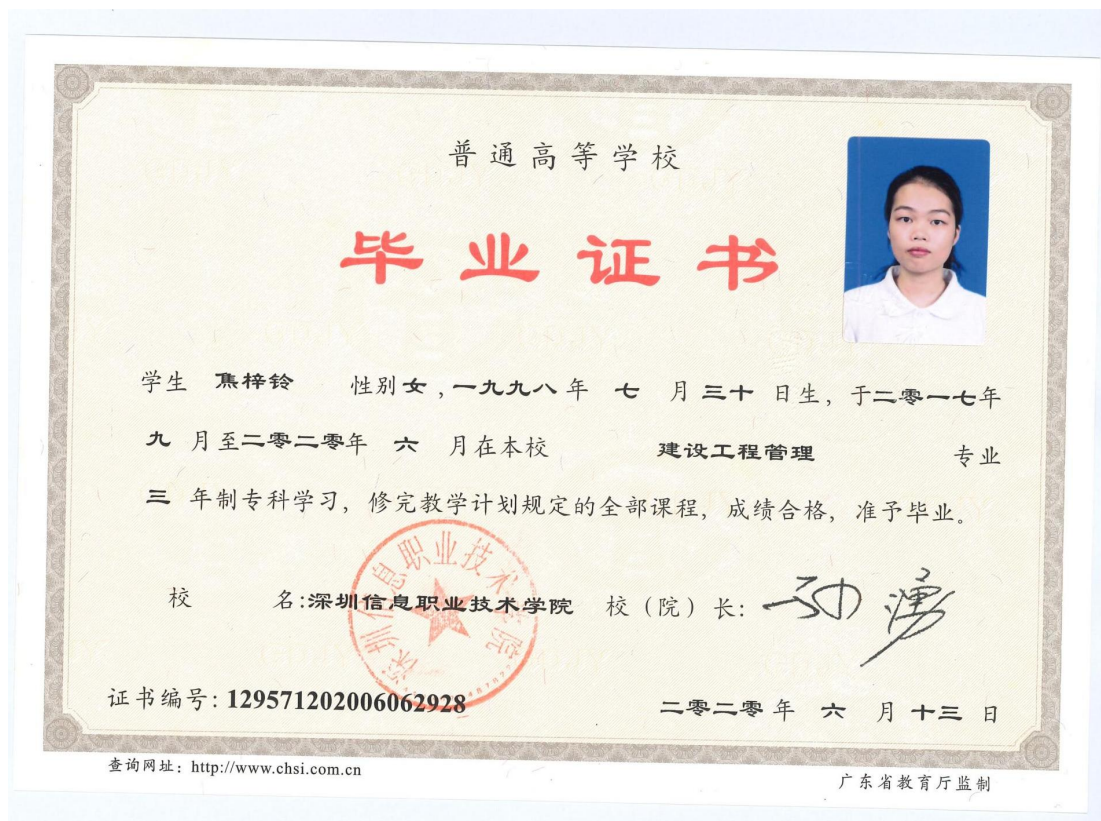 普通高等学校
毕业证书
学生 焦梓铃 性别女,一九九八年 七 月 三十 日生, 于二零一七年
九 月至二零二零年 六 月在本校 建设工程管理 专业
三 年制专科学习, 修完教学计划规定的全部课程, 成绩合格, 准予毕业。
校 名:深圳信息职业技术学院 校(院)长:
深圳信息职业技术学院
证书编号: 129571202006062928
二零二零年 六 月 十三 日
查询网址: http://www.chsi.com.cn
广东省教育厅监制